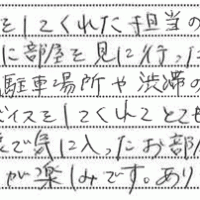 をしてくれた担当の
に部屋を見に行った
駐車場所や渋滞の
バイスをしてくれてとても
で気に入ったお部
が楽しみです。あり